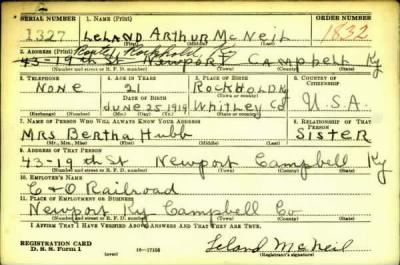 SERIAL NUMBER 1. NAME (Print) ORDER NUMBER
1327 LELAND ARTHUR MCNEIL 1832
(First) (Middle) (Last)
2. ADDRESS (Print) Route 1 Rockhold Ky
43-19th St Newport Campbell Ky
(Number and street or R. F. D. number) (Town) (County) (State)
3. TELEPHONE 4. AGE IN YEARS 5. PLACE OF BIRTH 6. COUNTRY OF CITIZENSHIP
NONE 21 ROCKHOLD K
DATE OF BIRTH (Town or county)
JUNE 25 1919 WHITLEY CO U.S.A.
(Exchange) (Number) (Mo.) (Day) (Yr.) (State or country)
7. NAME OF PERSON WHO WILL ALWAYS KNOW YOUR ADDRESS 8. RELATIONSHIP OF THAT PERSON
MRS BERTHA HUBB SISTER
(Mr., Mrs., Miss) (First) (Middle) (Last)
9. ADDRESS OF THAT PERSON
43-19th St Newport Campbell Ky
(Number and street or R. F. D. number) (Town) (County) (State)
10. EMPLOYER'S NAME
C&O Railroad
11. PLACE OF EMPLOYMENT OR BUSINESS
Newport Ky Campbell Co
(Number and street or R. F. D. number) (Town) (County) (State)
I AFFIRM THAT I HAVE VERIFIED ABOVE ANSWERS AND THAT THEY ARE TRUE.
REGISTRATION CARD
D. S. S. Form 1 16-17105 Leland McNeil
(Registrant's signature)